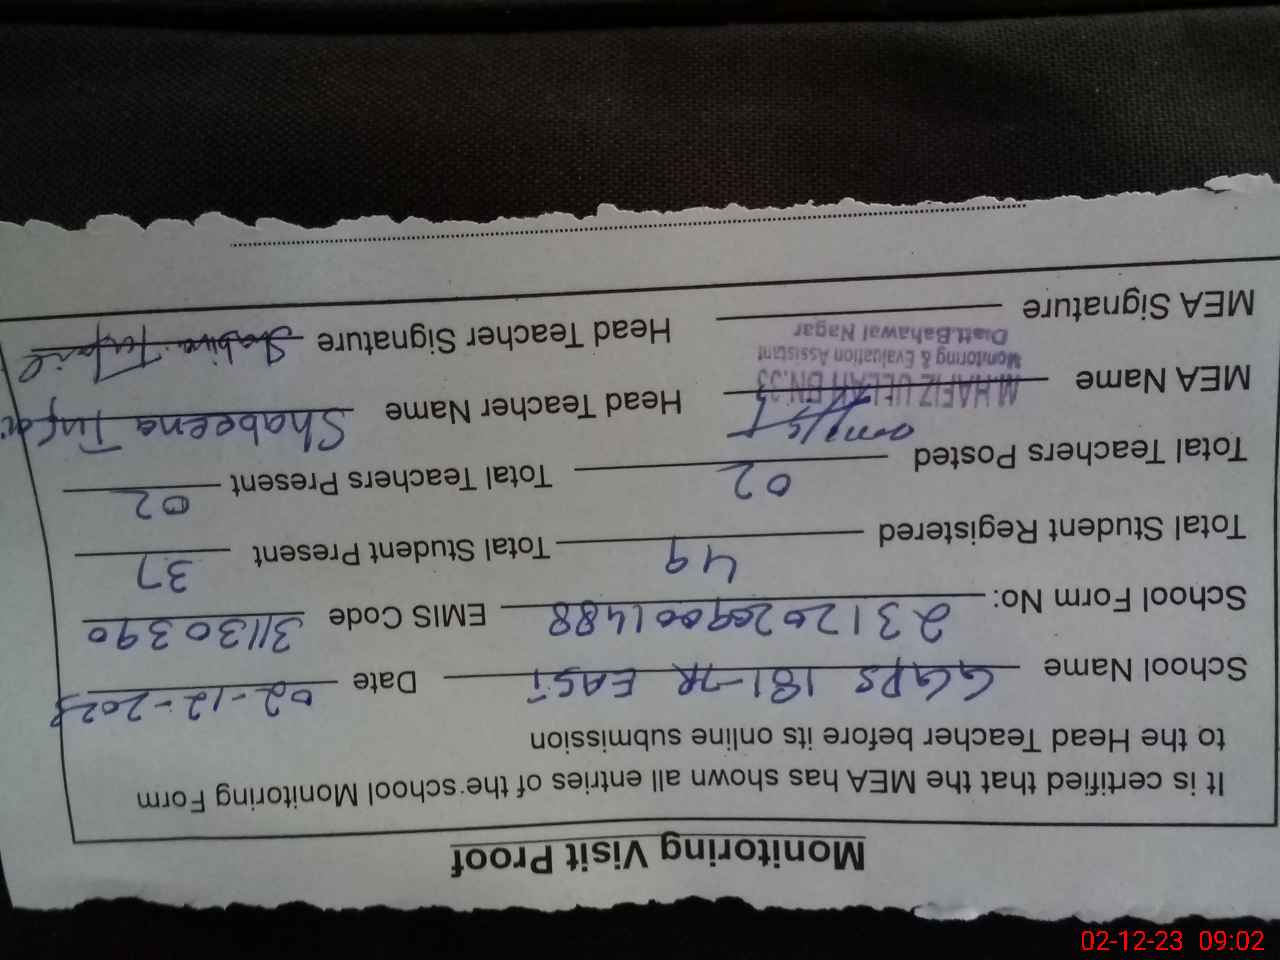 Monitoring Visit Proof
It is certified that the MEA has shown all entries of the school Monitoring Form
to the Head Teacher before its online submission
School Name GGPS 181-7R EAST Date 02-12-2023
School Form No: 23120209001488 EMIS Code 31130390
Total Student Registered 49 Total Student Present 37
Total Teachers Posted 02 Total Teachers Present 02
MEA Name M.HAFIZ ULLAH BN.33 Head Teacher Name Shabeena
Monitoring & Evaluation Assistant
Distt.Bahawal Nagar
MEA Signature Head Teacher Signature
02-12-23 09:02